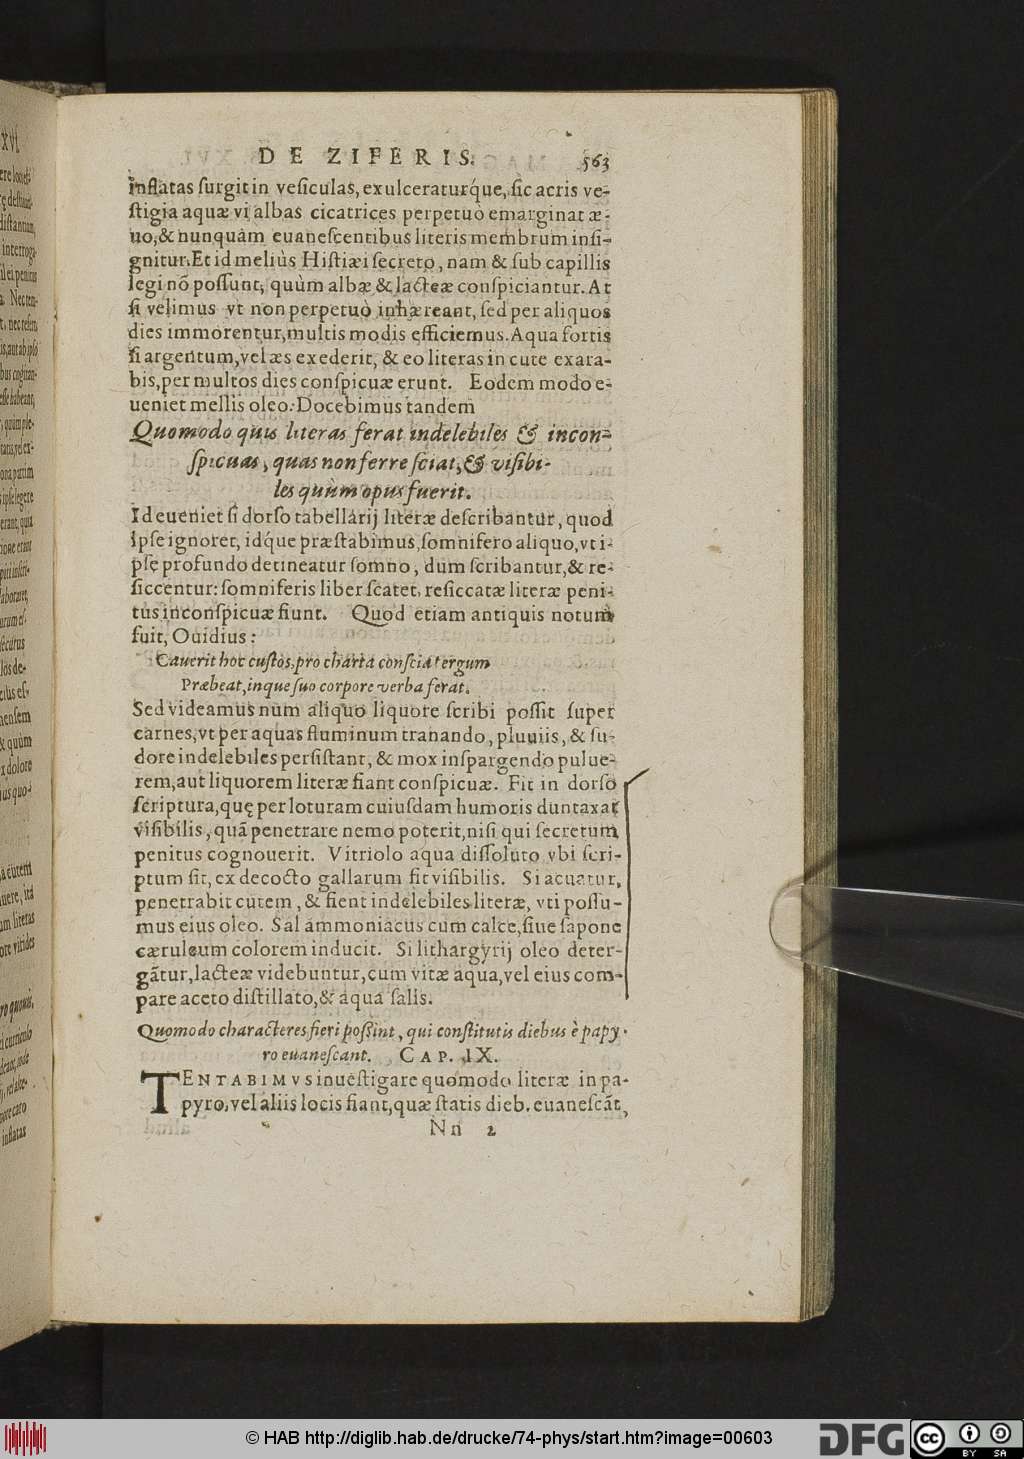 DE ZIFERIS. 563
inflatas surgit in vesiculas, exulceraturq́ue, sic acris ve-
stigia aquæ vi albas cicatrices perpetuò emarginat æ-
uo, & nunquàm euanescentibus literis membrum insi-
gnitur. Et id meliùs Histiæi secreto, nam & sub capillis
legi nō possunt, quùm albæ & lacteæ conspiciantur. At
si velimus vt non perpetuò inhæreant, sed per aliquos
dies immorentur, multis modis efficiemus. Aqua fortis
si argentum, vel æs exederit, & eo literas in cute exara-
bis, per multos dies conspicuæ erunt. Eodem modo e-
ueniet mellis oleo: Docebimus tandem
Quomodo quis literas ferat indelebiles & incon-
spicuas, quas non ferre sciat, & visibi-
les quùm opus fuerit.
Id eueniet si dorso tabellarij literæ describantur, quod
ipse ignoret, idq́ue præstabimus, somnifero aliquo, vt i-
psę profundo detineatur somno, dum scribantur, & re-
siccentur: somniferis liber scatet, resiccatæ literæ peni-
tùs inconspicuæ fiunt. Quod etiam antiquis notum
fuit, Ouidius:
Cauerit hoc custos, pro charta conscia tergum
Præbeat, inque suo corpore verba ferat.
Sed videamus num aliquo liquore scribi possit super
carnes, vt per aquas fluminum tranando, pluuiis, & su-
dore indelebiles persistant, & mox inspargendo pulue-
rem, aut liquorem literæ fiant conspicuæ. Fit in dorso
scriptura, quę per loturam cuiusdam humoris duntaxat
visibilis, quā penetrare nemo poterit, nisi qui secretum
penitus cognouerit. Vitriolo aqua dissoluto vbi scri-
ptum sit, ex decocto gallarum fit visibilis. Si acuatur,
penetrabit cutem, & fient indelebiles literæ, vti possu-
mus eius oleo. Sal ammoniacus cum calce, siue sapone
cæruleum colorem inducit. Si lithargyrij oleo deter-
gātur, lacteæ videbuntur, cum vitæ aqua, vel eius com-
pare aceto distillato, & aqua salis.
Quomodo characteres fieri possint, qui constitutis diebus è papy-
ro euanescant. CAP. IX.
TENTABIMVS inuestigare quomodo literæ in pa-
pyro, vel aliis locis fiant, quæ statis dieb. euanescāt,
Nn 2
© HAB http://diglib.hab.de/drucke/74-phys/start.htm?image=00603
DFG
cc BY SA